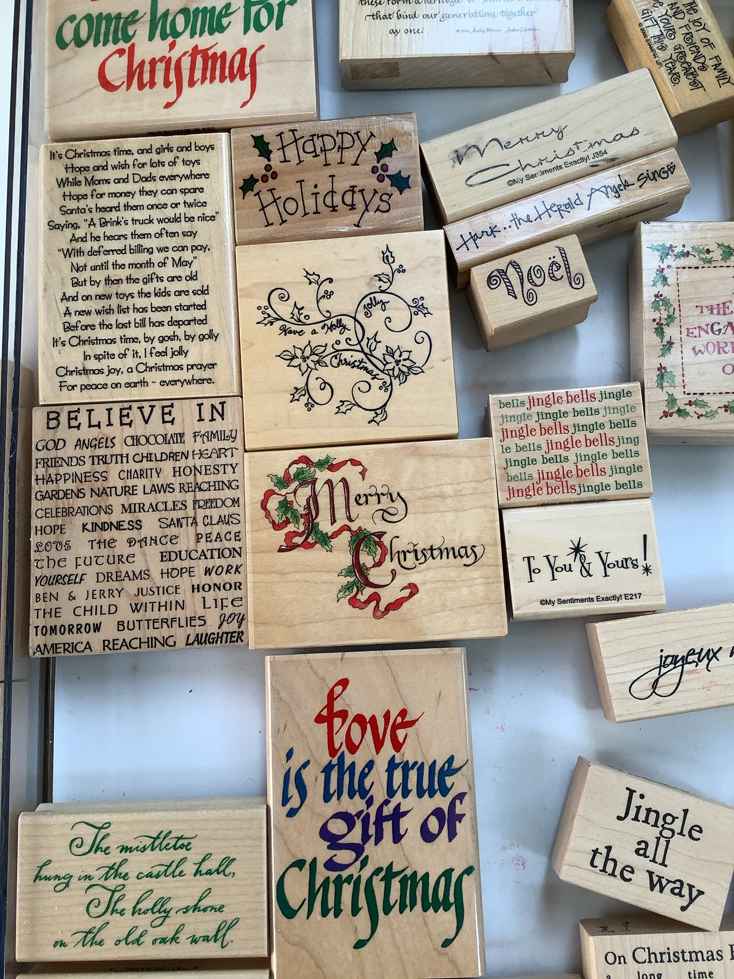 come home for
Christmas
that bind our generations together
as one.
JOY OF FAMILY
AND FRIENDS
YOUR GREATEST
GIFT THIS
YEAR.
It's Christmas time, and girls and boys
Hope and wish for lots of toys
While Moms and Dads everywhere
Hope for money they can spare
Santa's heard them once or twice
Saying, "A Brink's truck would be nice"
And he hears them often say
"With deferred billing we can pay,
Not until the month of May"
But by then the gifts are old
And on new toys the kids are sold
A new wish list has been started
Before the last bill has departed
It's Christmas time, by gosh, by golly
In spite of it, I feel jolly
Christmas joy, a Christmas prayer
For peace on earth - everywhere.
Happy
Holidays
Merry
Christmas
©My Sentiments Exactly! J354
Hark..the Herald Angels Sing
Noël
Have a Holly
Jolly
Christmas
THE
WOR
O
BELIEVE IN
GOD ANGELS CHOCOLATE FAMILY
FRIENDS TRUTH CHILDREN HEART
HAPPINESS CHARITY HONESTY
GARDENS NATURE LAWS REACHING
CELEBRATIONS MIRACLES FREEDOM
HOPE KINDNESS SANTA CLAUS
LOVE THE DANCE PEACE
THE FUTURE EDUCATION
YOURSELF DREAMS HOPE WORK
BEN & JERRY JUSTICE HONOR
THE CHILD WITHIN LIFE
TOMORROW BUTTERFLIES JOY
AMERICA REACHING LAUGHTER
Merry
Christmas
bells jingle bells jingle
jingle jingle bells jingle
jingle bells jingle bells
le bells jingle bells jing
jingle bells jingle bells
bells jingle bells jingle
jingle bells jingle bells
To You & Yours!
©My Sentiments Exactly! E217
joyeux
Love
is the true
gift of
Christmas
Jingle
all
the way
The mistletoe
hung in the castle hall,
The holly shone
on the old oak wall.
On Christmas
a long time